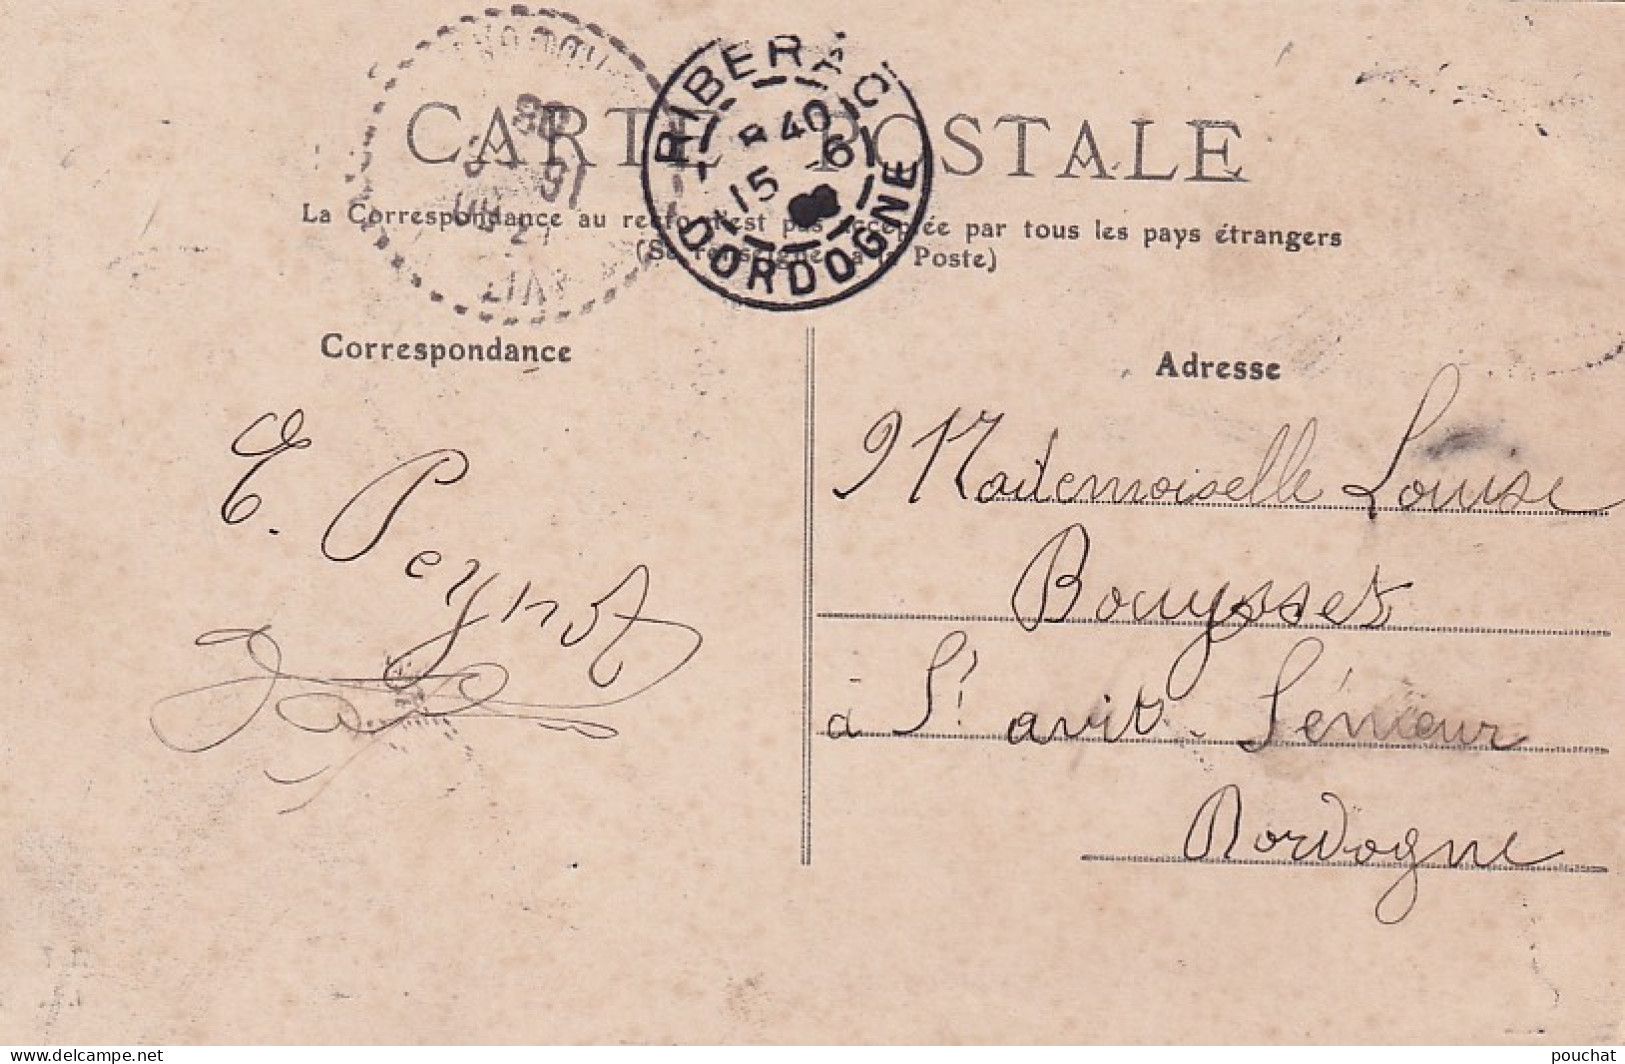 CARTE POSTALE
RIBERAC
40
15 -6
DORDOGNE
La Correspondance au recto n'est pas acceptée par tous les pays étrangers
(Se renseigner à la Poste)
Correspondance
Adresse
E. Peynot
Mademoiselle Louise
Bouysset
à St. avit - Sénieur
Dordogne
https://www.delcampe.net
pouchat